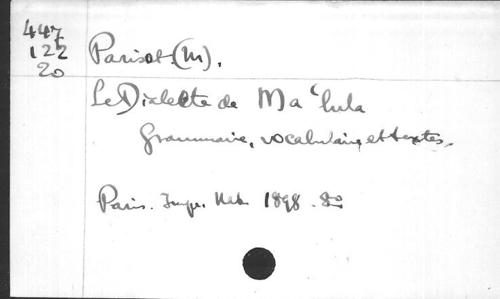 447
122
20
Parisot (M).
Le Dialecte de Ma'lula
Grammaire, vocabulaire et textes.
Paris. Impr. Nat. 1898. 8o